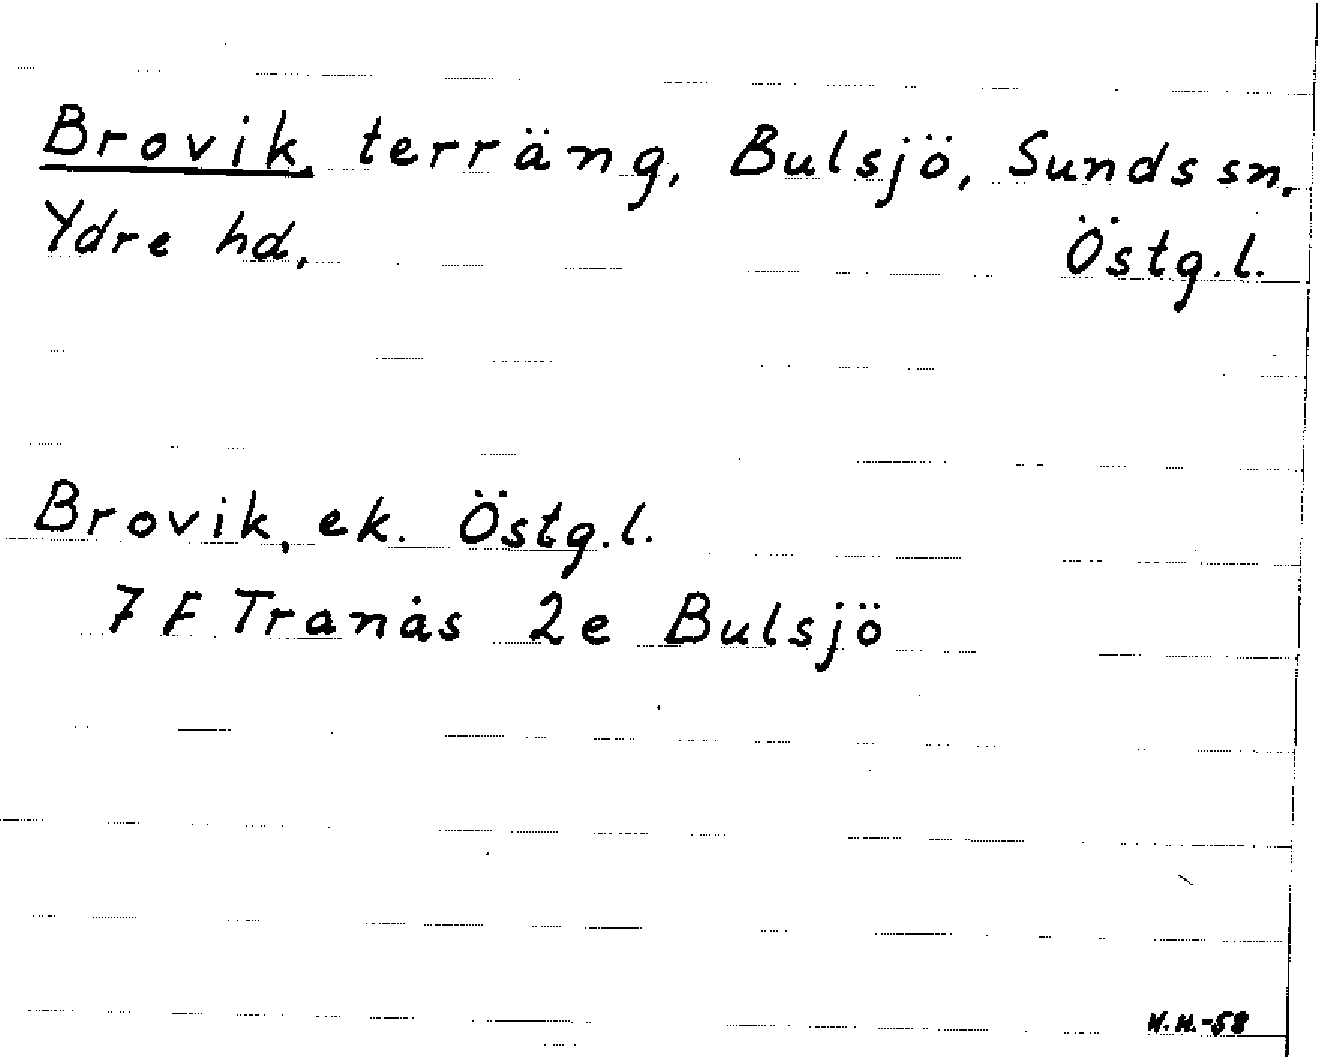 Brovik, terräng, Bulsjö, Sunds sn.
Ydre hd, Östg.l.
Brovik, ek. Östg.l.
7 F Tranås 2e Bulsjö
-58